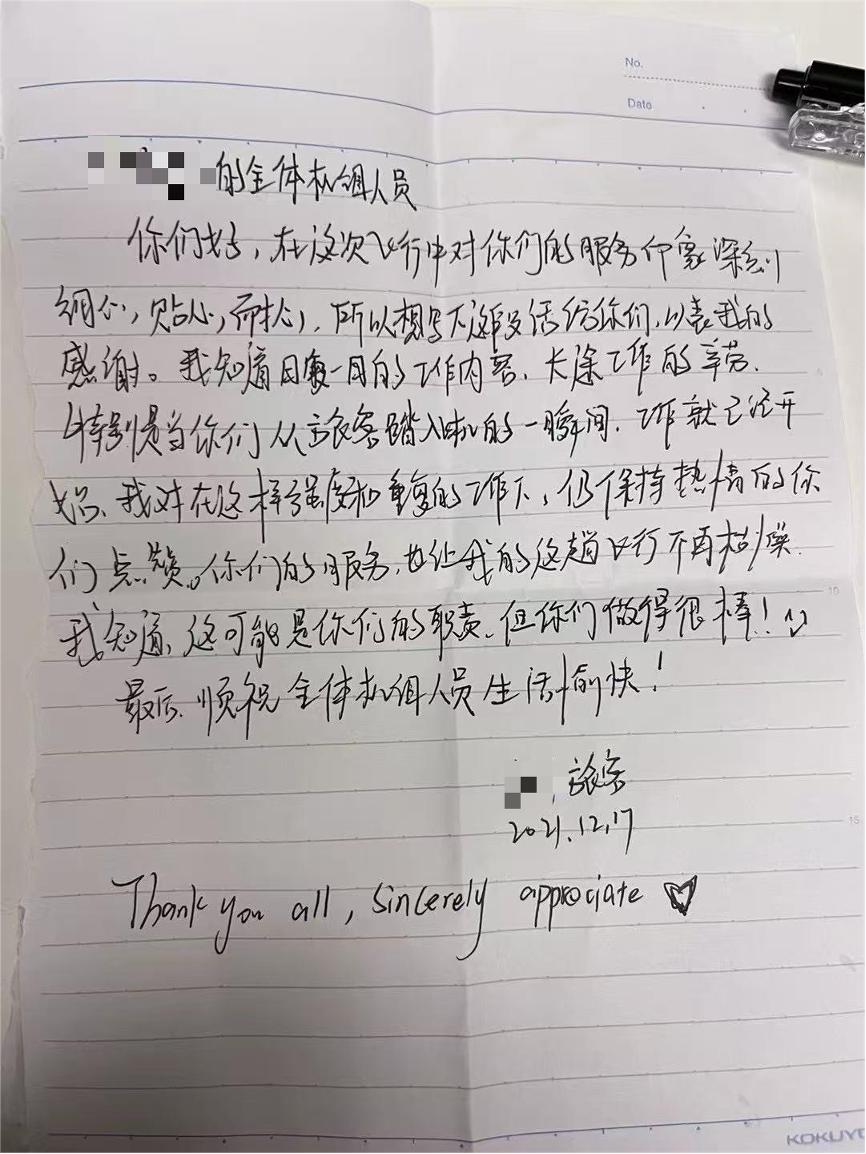 No.
Date
的全体机组人员
你们好,在这次飞行中对你们的服务印象深刻
细心,贴心,而耐心,所以想写下这段话给你们,以表我的
感谢。我知道日复一日的工作内容、长途工作的辛劳、
特别是当你们从旅客踏入机的一瞬间,工作就已经开
始、我对在这样强度和重复的工作下、仍保持热情的你
们点赞。你们的服务,也让我的这趟飞行不再枯燥
我知道、这可能是你们的职责、但你们做得很棒!
最后、顺祝全体机组人员生活愉快!
旅客
2021.12.17
Thank you all, sincerely approciate
10
15
KOKUYO